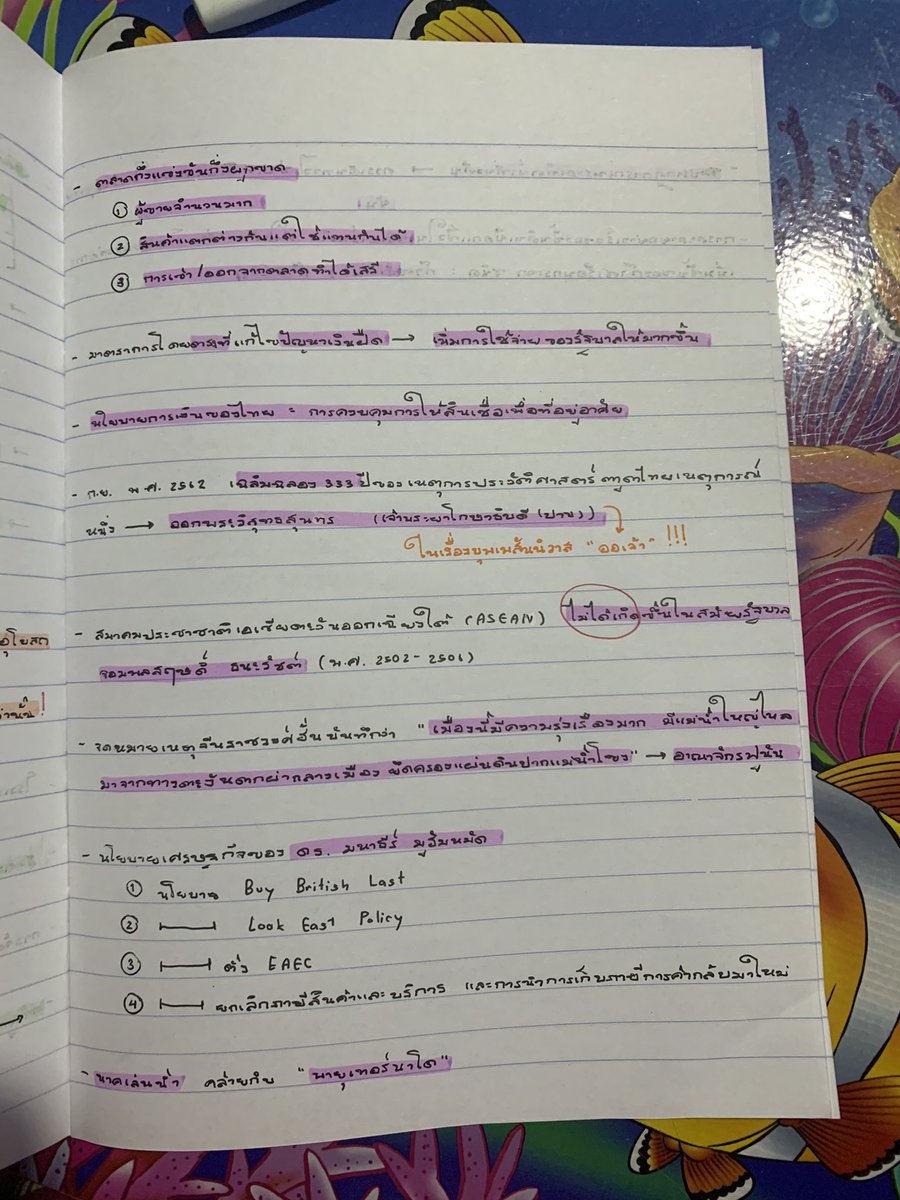 - ตลาดกึ่งแข่งขันกึ่งผูกขาด
① ผู้ขายจำนวนมาก
② สินค้าแตกต่างกันแต่ใช้แทนกันได้
③ การเข้า/ออกจากตลาดทำได้เสรี
- มาตราการโดยตรงที่แก้ไขปัญหาเงินฝืด → เพิ่มการใช้จ่ายของรัฐบาลให้มากขึ้น
- นโยบายการเงินของไทย = การควบคุมการให้สินเชื่อเพื่อที่อยู่อาศัย
- ก.ย. พ.ศ. 2562 เฉลิมฉลอง 333 ปีของเหตุการประวัติศาสตร์การทูตไทยเหตุการณ์
หนึ่ง → ออกพระวิสุทธสุนทร (เจ้าพระยาโกษาธิบดี (ปาน))
ในเรื่องบุพเพสันนิวาส "ออเจ้า" !!!
- สมาคมประชาชาติเอเชียตะวันออกเฉียงใต้ (ASEAN) ไม่ได้เกิดขึ้นในสมัยรัฐบาล
จอมพลสฤษดิ์ ธนะรัชต์ (พ.ศ. 2502-2506)
- จดหมายเหตุจีนราชวงศ์ฮั่นบันทึกว่า "เมืองนี้มีความรุ่งเรืองมาก มีแม่น้ำใหญ่ไหล
มาจากทางตะวันตกผ่ากลางเมือง ยึดครองแผ่นดินปากแม่น้ำโขง" → อาณาจักรฟูนัน
- นโยบายเศรษฐกิจของ ดร. มหาธีร์ มูฮัมหมัด
① นโยบาย Buy British Last
② Look East Policy
③ ตั้ง EAEC
④ ยกเลิกภาษีสินค้าและบริการ และการนำการเก็บภาษีการค้ากลับมาใหม่
- นาคเล่นน้ำ คล้ายกับ "พายุเทอร์นาโด"